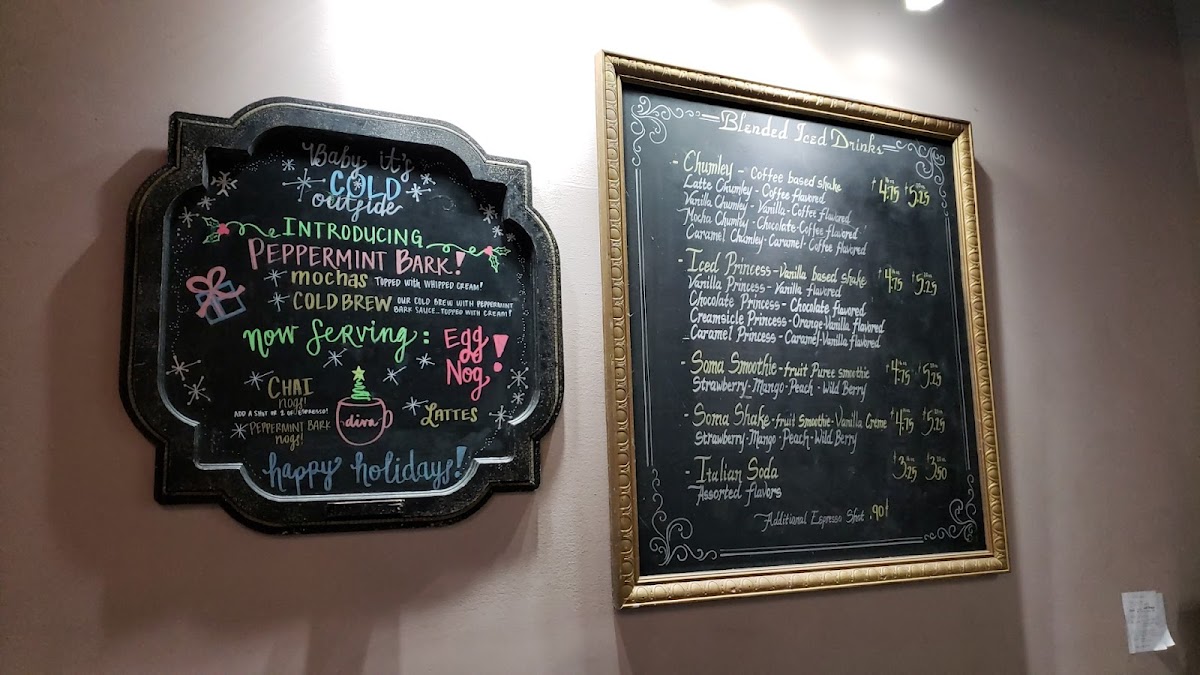 Baby it's
COLD
outside
INTRODUCING
PEPPERMINT BARK!
mochas TOPPED WITH WHIPPED CREAM!
COLD BREW OUR COLD BREW WITH PEPPERMINT
BARK SAUCE...TOPPED WITH CREAM!
Now Serving:
Egg
Nog!
CHAI
nogs!
ADD A SHOT OR 2 OF ESPRESSO!
PEPPERMINT BARK
nogs!
diva
LATTES
happy holidays!
Blended Iced Drinks
- Chumley - Coffee based shake $4.75 $5.25
Latte Chumley - Coffee flavored
Vanilla Chumley - Vanilla-Coffee flavored
Mocha Chumley - Chocolate-Coffee flavored
Caramel Chumley-Caramel-Coffee flavored
- Iced Princess - Vanilla based shake $4.75 $5.25
Vanilla Princess - Vanilla flavored
Chocolate Princess - Chocolate flavored
Creamsicle Princess - Orange-Vanilla flavored
Caramel Princess - Caramel-Vanilla flavored
- Soma Smoothie - fruit Puree smoothie $4.75 $5.25
Strawberry - Mango - Peach - Wild Berry
- Soma Shake - fruit smoothie - Vanilla Creme $4.75 $5.25
Strawberry - Mango - Peach - Wild Berry
- Italian Soda $3.25 $3.50
Assorted flavors
Additional Espresso Shot .90¢